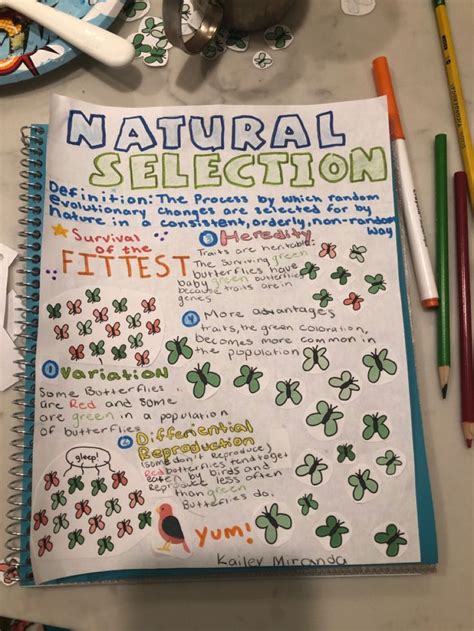 NATURAL
SELECTION
Definition: The Process by which random
evolutionary changes are selected for by
Nature in a consistent, orderly, non-random
way
Survival
of the
FITTEST
③ Heredity
Traits are heritable.
The surviving green
butterflies have
baby green butterflies
because traits are in
genes.
④ More advantages
traits, the green coloration,
becomes more common in
the population
① Variation
Some Butterflies
are Red and some
are green in a population
of butterflies
② Differential
Reproduction
(some don't Reproduce)
Red butterflies tend to get
eaten by birds and
Reproduce less often
than green
Butterflies do.
gleep!
yum!
Kailey Miranda